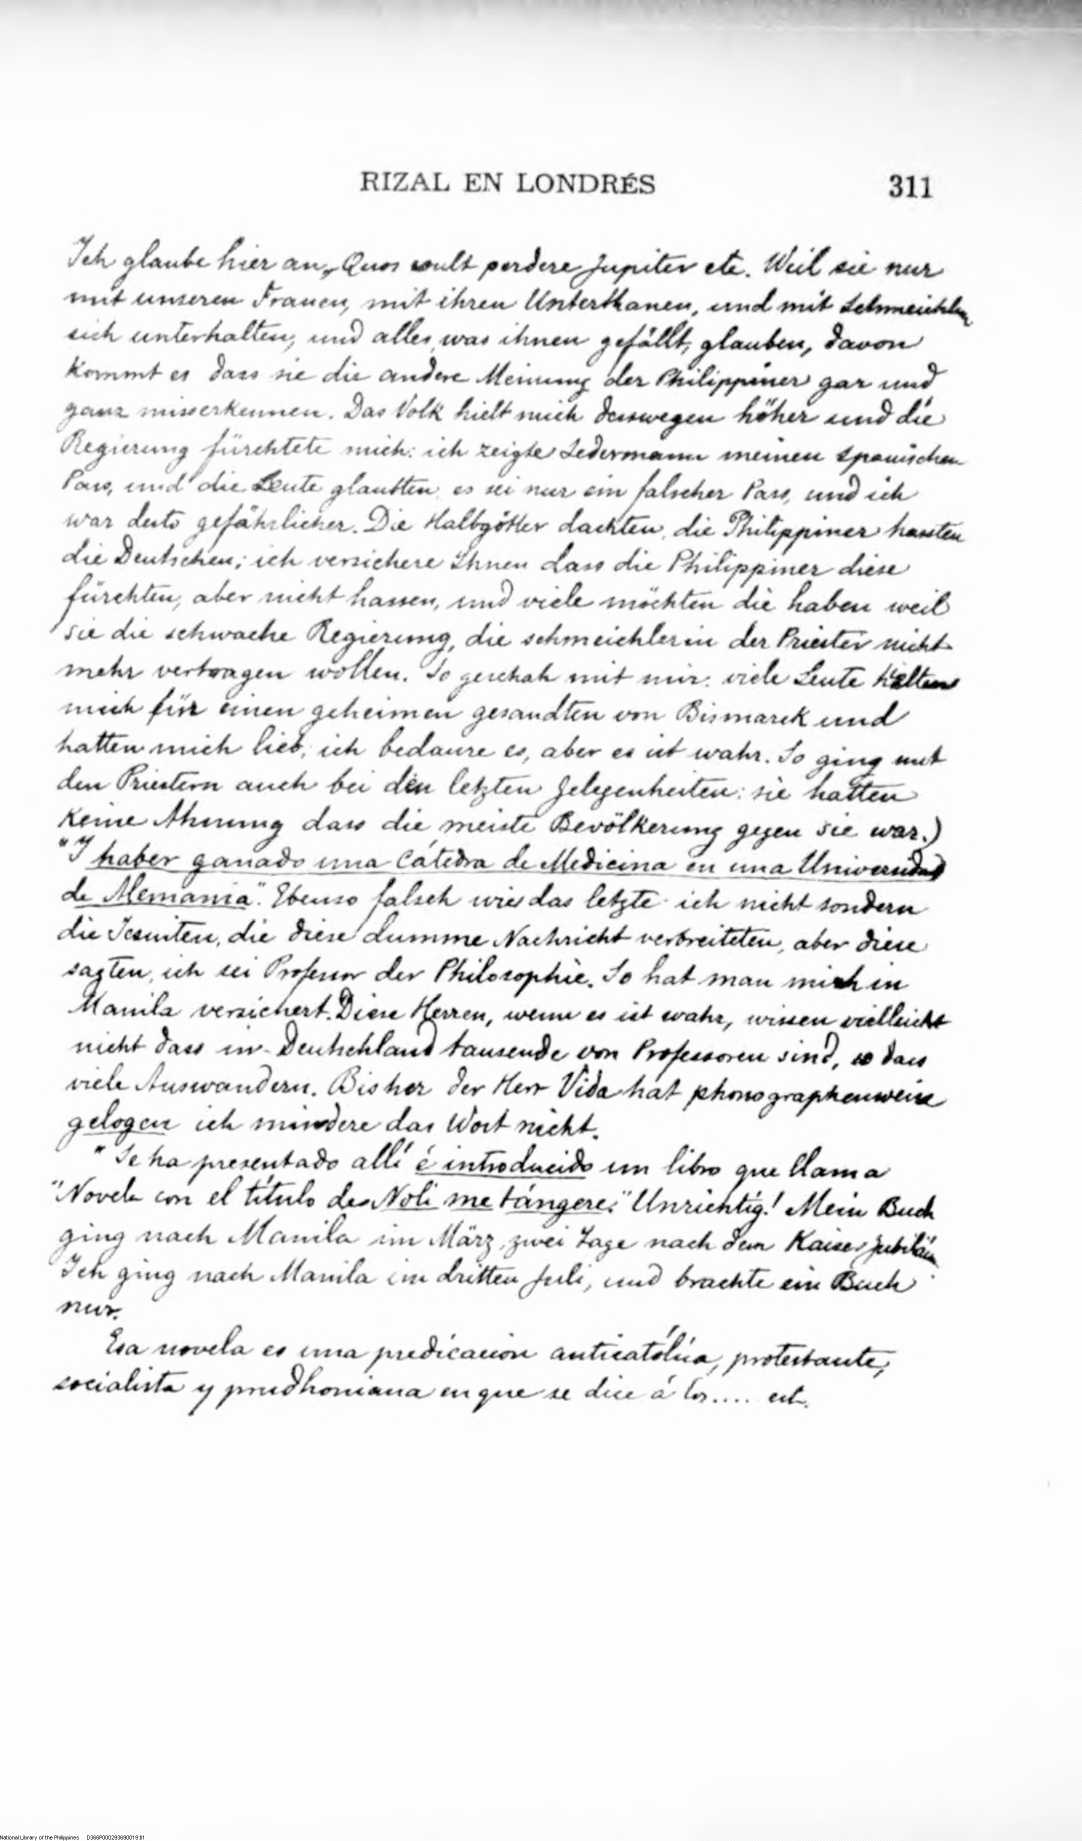 RIZAL EN LONDRÉS 311
Ich glaube hier an „Quos vult perdere Jupiter etc. Weil sie nur
mit unseren Frauen, mit ihren Unterthanen, und mit Schmeichlern
sich unterhalten, und alles, was ihnen gefällt, glauben, davon
kommt es dass sie die andere Meinung der Philippiner gar und
ganz misserkennen. Das Volk hielt mich deswegen höher und die
Regierung fürchtete mich: ich zeigte Jedermann meinen spanischen
Pass, und die Leute glaubten es sei nur ein falscher Pass, und ich
war desto gefährlicher. Die Halbgötter dachten, die Philippiner hassten
die Deutschen; ich versichere Ihnen dass die Philippiner diese
fürchten, aber nicht hassen, und viele möchten die haben weil
sie die schwache Regierung, die schmeichlerin der Priester nicht
mehr vertragen wollen. So geschah mit mir: viele Leute hielten
mich für einen geheimen gesandten von Bismarck und
hatten mich lieb; ich bedaure es, aber es ist wahr. So ging mit
den Priestern auch bei den letzten Gelegenheiten: sie hatten
keine Ahnung dass die meiste Bevölkerung gegen sie war.)
"Y haber ganado una Cátedra de Medicina en una Universidad
de Alemania". Ebenso falsch wie das letzte: ich nicht sondern
die Jesuiten, die diese dumme Nachricht verbreiteten, aber diese
sagten, ich sei Professor der Philosophie. So hat man mich in
Manila versichert. Diese Herren, wenn es ist wahr, wissen vielleicht
nicht dass in Deutschland tausende von Professoren sind, so dass
viele Auswandern. Bisher der Herr Vida hat phonographenweise
gelogen ich mindere das Wort nicht.
"Se ha presentado allí é introducido un libro que llama
"Novela con el título de Noli me tángere." Unrichtig! Mein Buch
ging nach Manila im März, zwei Tage nach dem Kaiser Jubiläum.
Ich ging nach Manila im dritten Juli, und brachte ein Buch
nur.
Esa novela es una predicación anticatólica, protestante,
socialista y prudhoniana en que se dice á los.... etc.
National Library of the Philippines